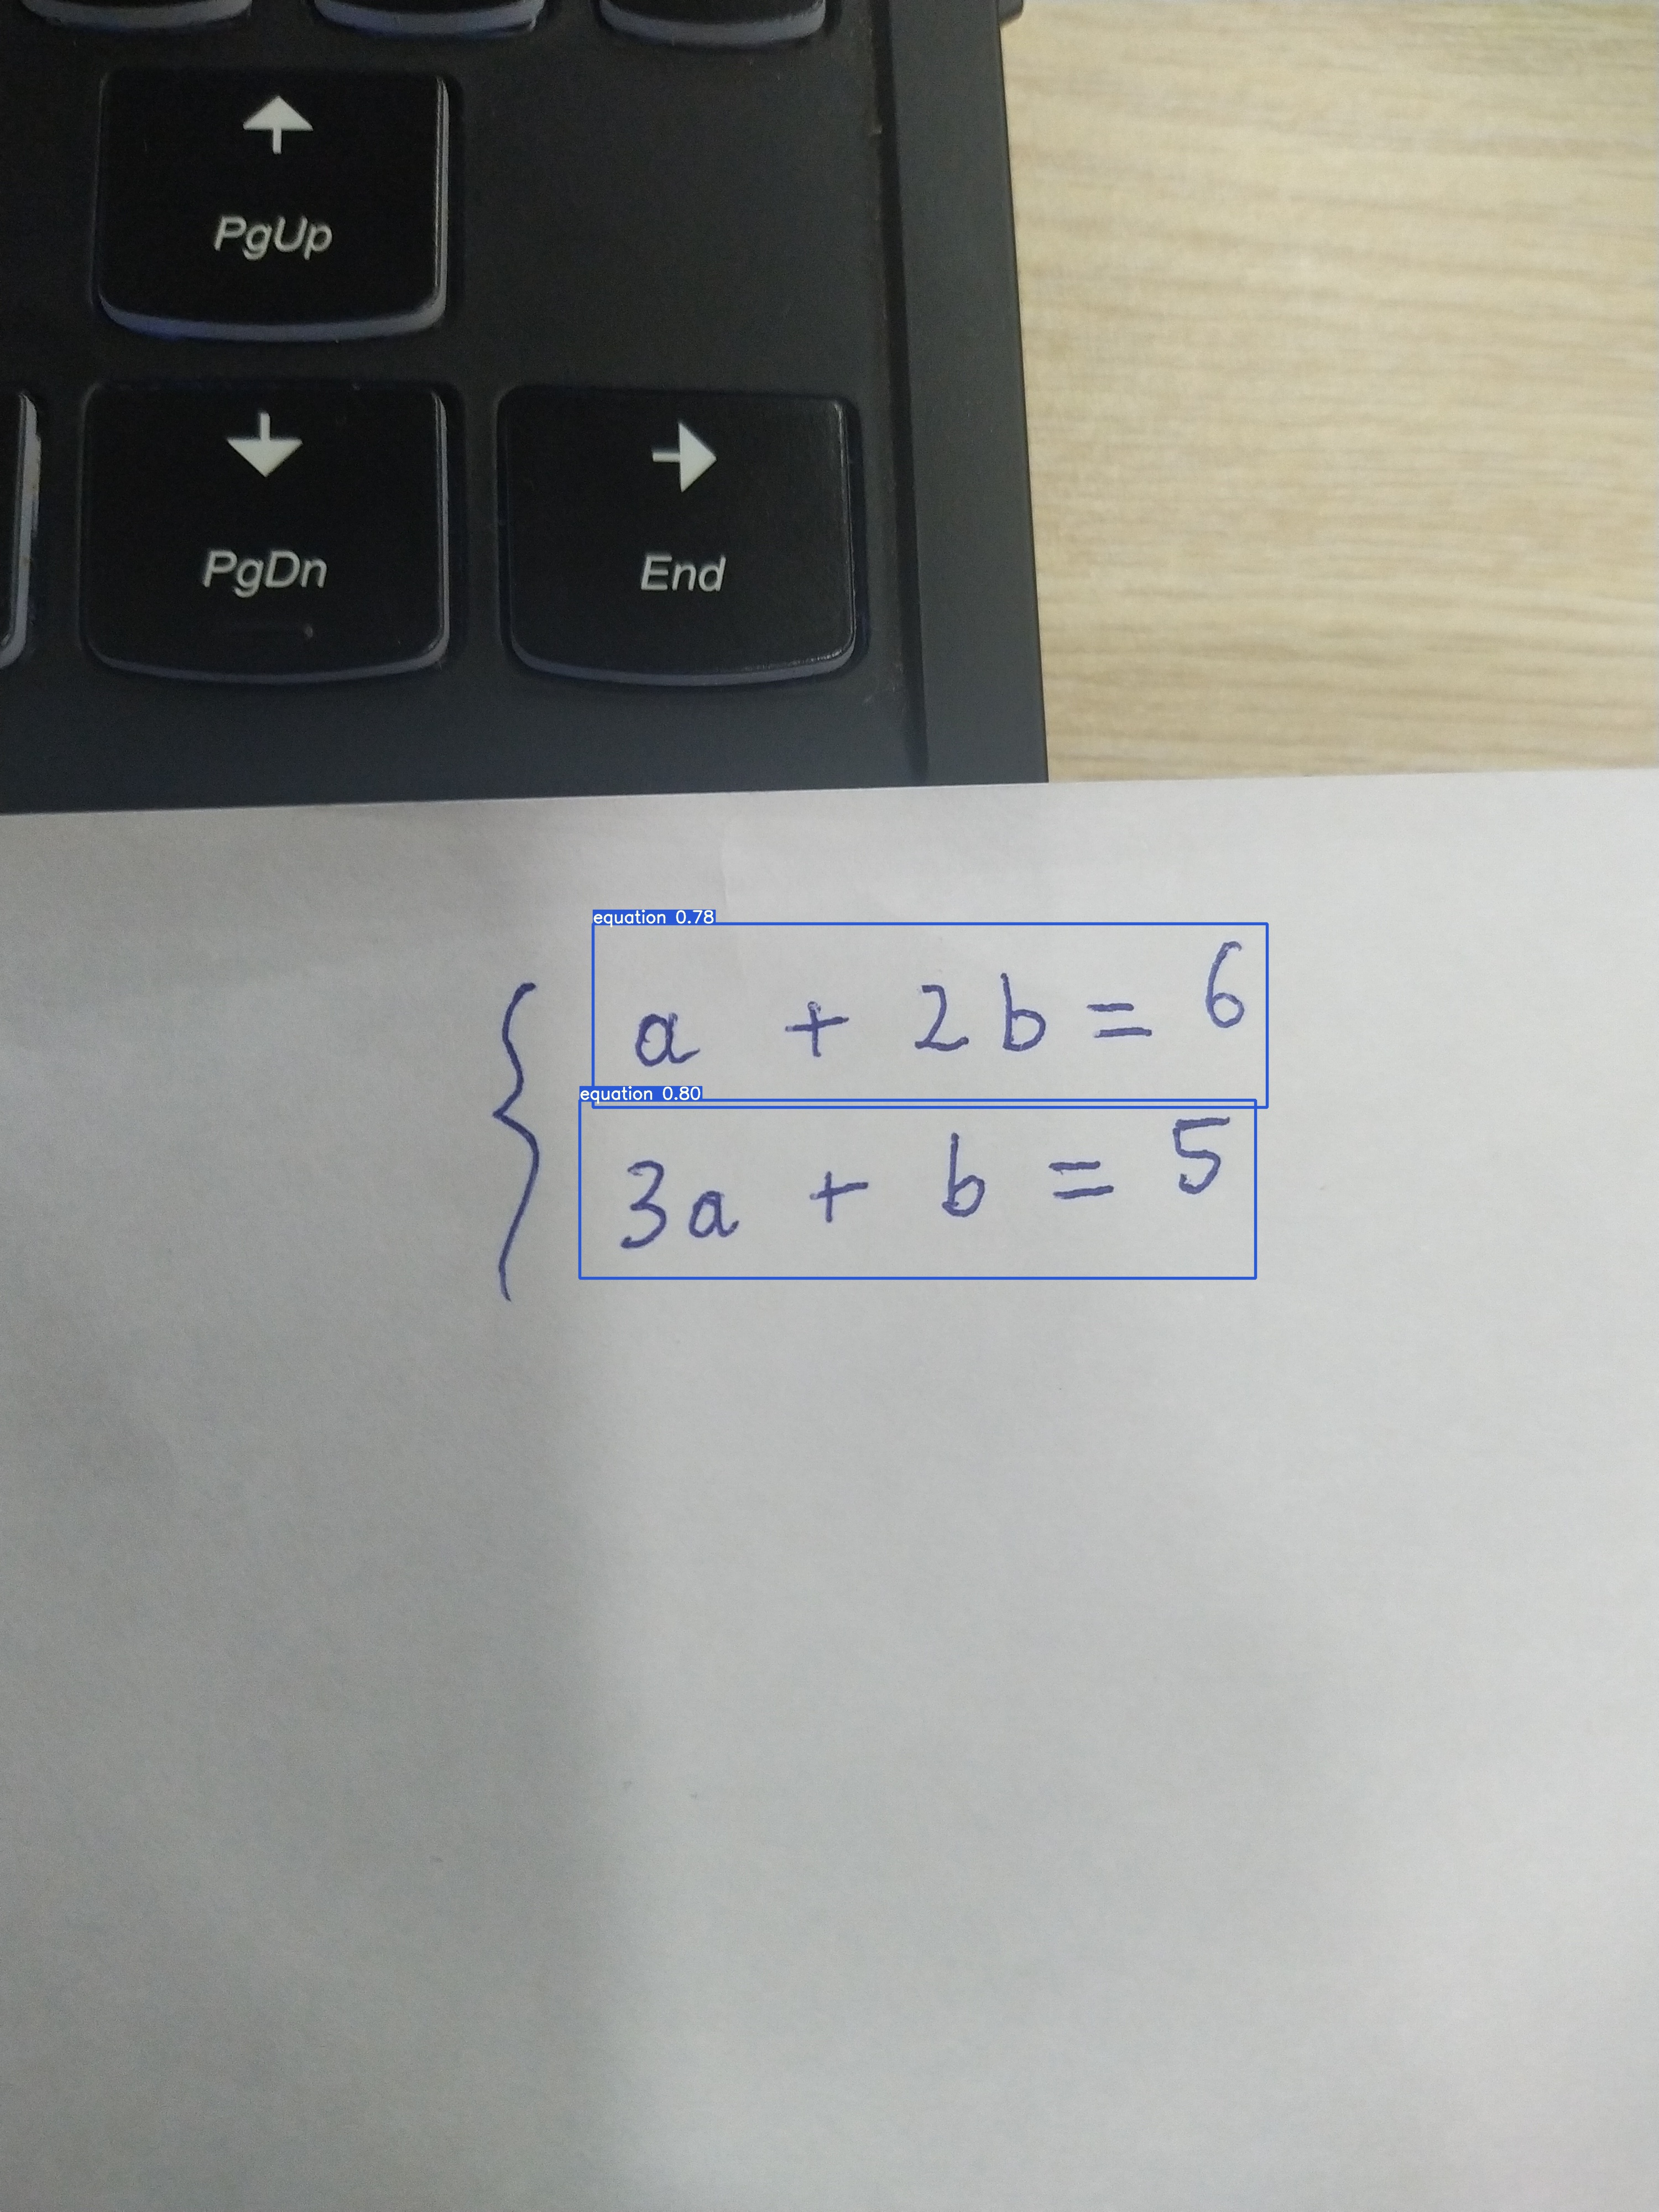 PgUp
PgDn End
equation 0.78
a + 2b = 6
equation 0.80
3a + b = 5